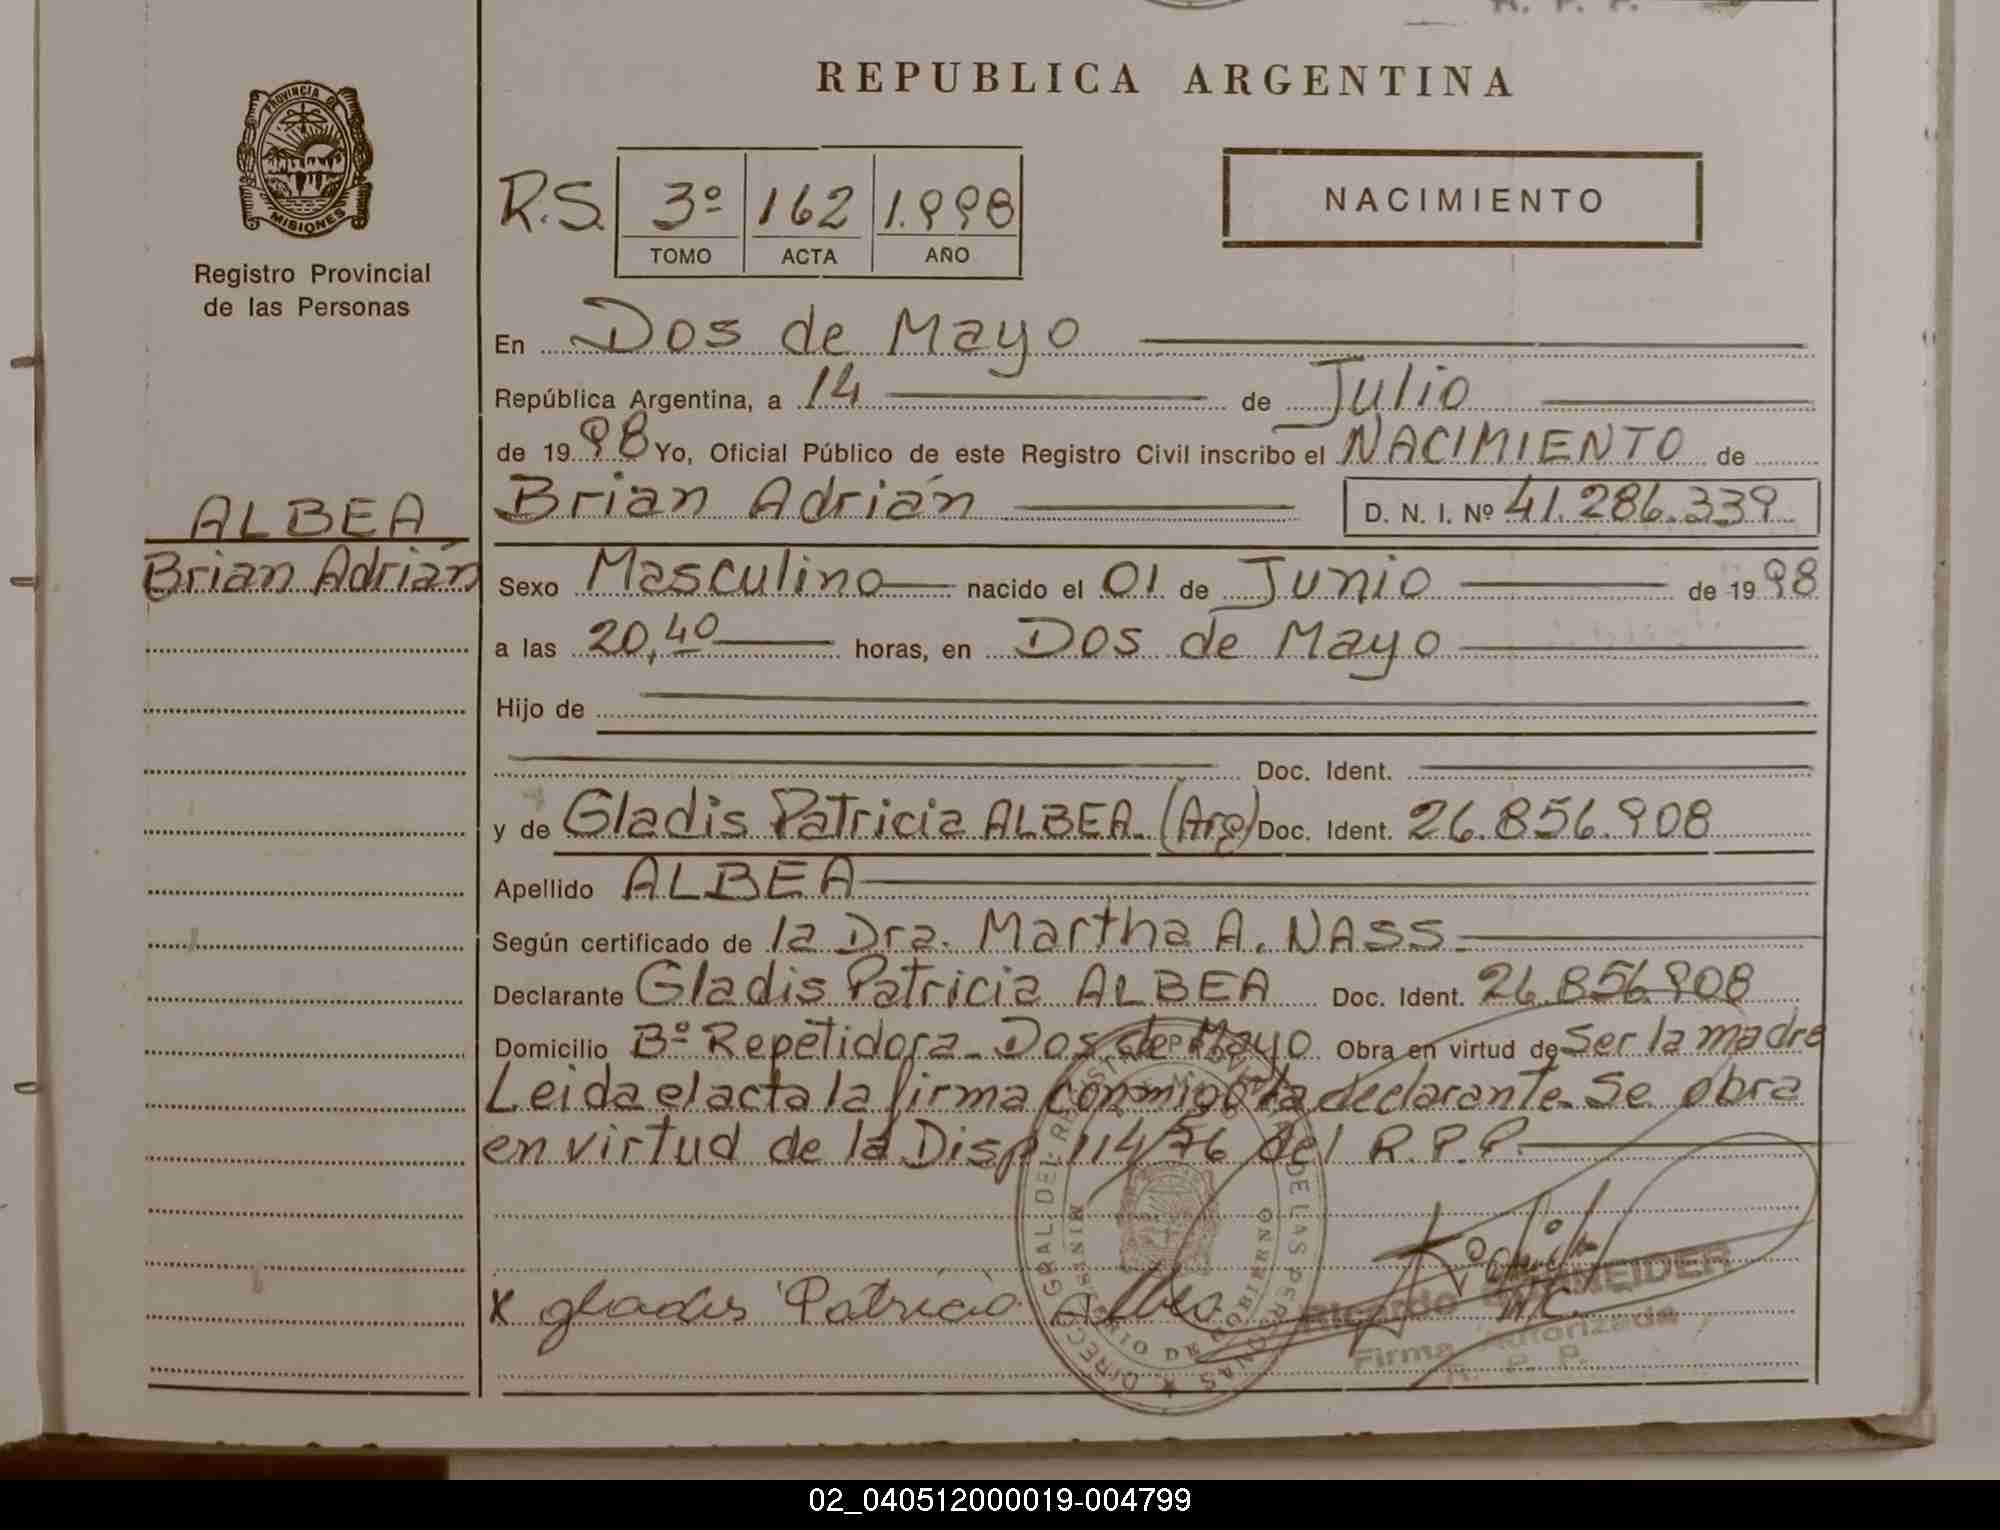 R. P. P.
REPUBLICA ARGENTINA
PROVINCIA DE
MISIONES
Registro Provincial
de las Personas
R.S. 3º 162 1.998
TOMO ACTA AÑO
NACIMIENTO
En Dos de Mayo
República Argentina, a 14 de Julio
de 1998 Yo, Oficial Público de este Registro Civil inscribo el NACIMIENTO de
ALBEA
Brian Adrián
Brian Adrián D. N. I. Nº 41.286.339
Sexo Masculino nacido el 01 de Junio de 1998
a las 20,40 horas, en Dos de Mayo
Hijo de
Doc. Ident.
y de Gladis Patricia ALBEA (Arg) Doc. Ident. 26.856.908
Apellido ALBEA
Según certificado de la Dra. Martha A. NASS
Declarante Gladis Patricia ALBEA Doc. Ident. 26.856.908
Domicilio Bº Repetidora - Dos de Mayo Obra en virtud de Ser la madre
Leida el acta la firma conmigo la declarante. Se obra
en virtud de la Disp 114/76 del R.P.P.
X gladis Patricia Albea
DIRECC. GRAL DEL REGISTRO PROVINCIAL DE LAS PERSONAS
MINISTERIO DE GOBIERNO
Ricardo SCHMEIDER
Firma Autorizada
R. P. P.
02_040512000019-004799